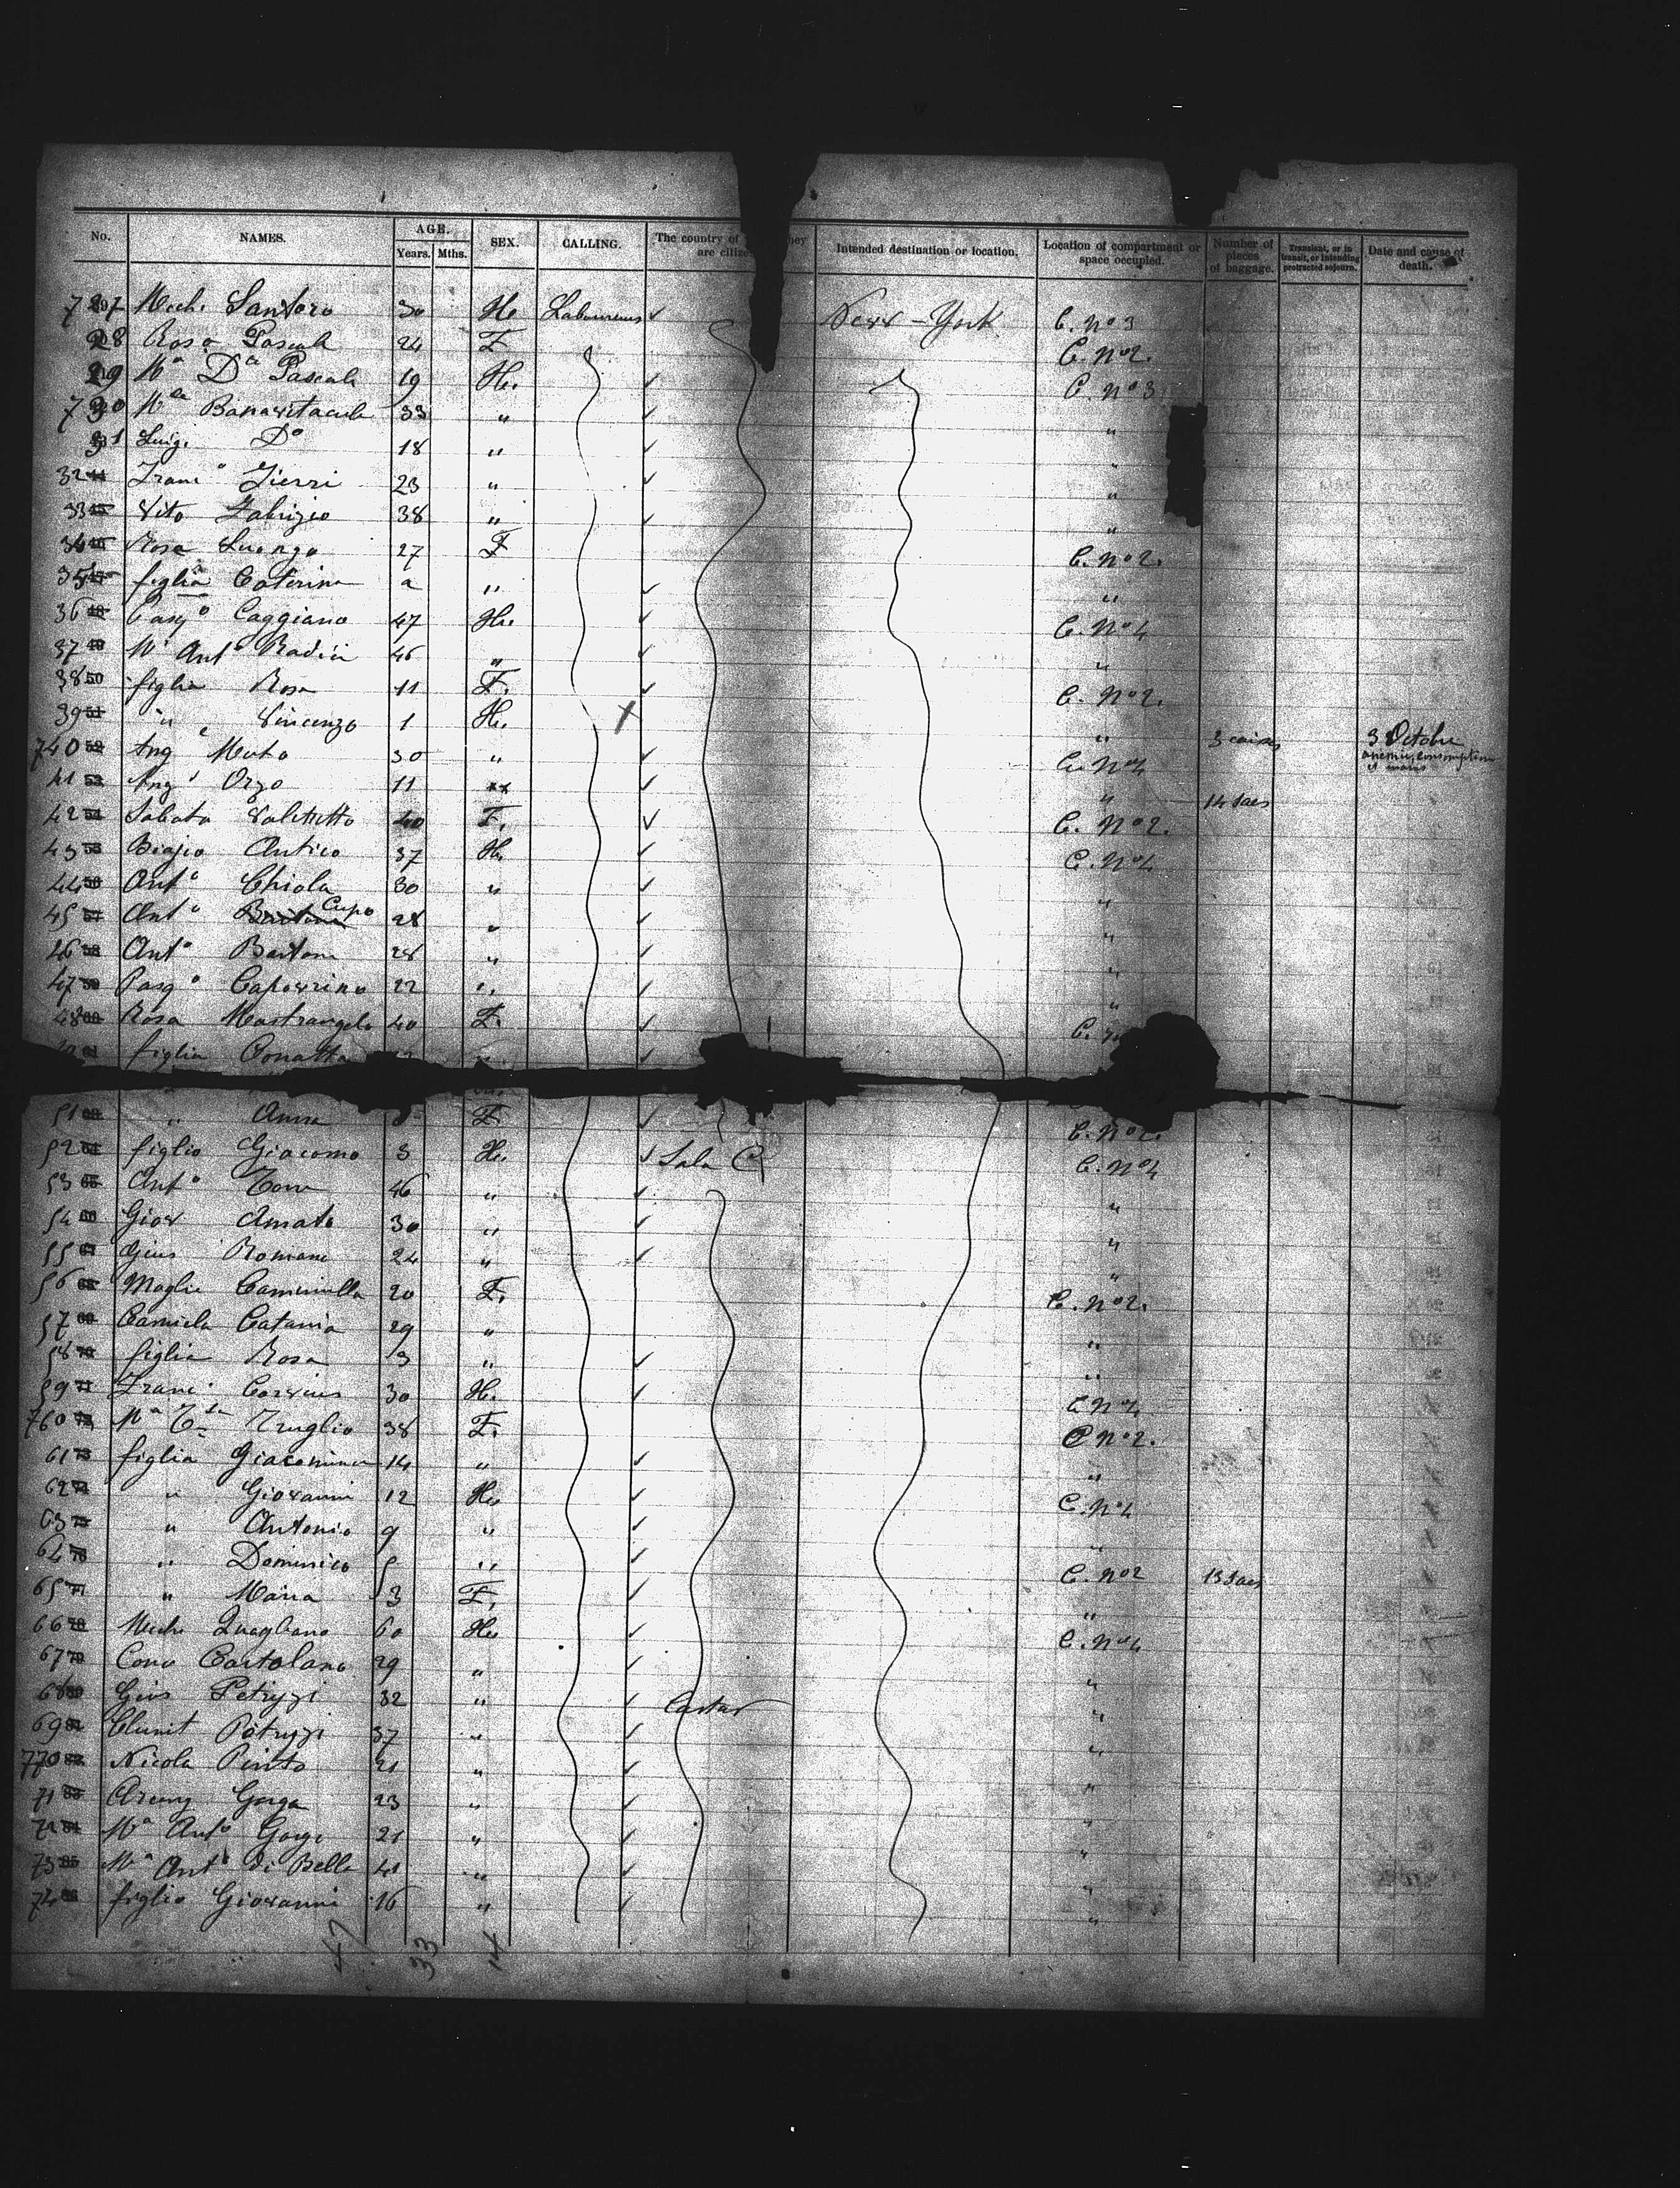 No. NAMES. AGE. Years. Mths. SEX. CALLING. The country of they are citize Intended destination or location. Location of compartment or space occupied. Number of pieces of baggage. Transient, or in transit, or intending protracted sojourn. Date and cause of death.
727 Mich. Santoro 30 He Labourens New-York C. No 3
28 Rosa Pascale 24 F C. No 2.
29 Ma Da Pascale 19 He. C. No 3
730 Bonavitacula 33 " "
31 Luigi Do 18 " "
32 Franco Fierri 23 " "
33 Vito Fabrizio 38 " "
34 Rosa Luongo 27 F C. No 2.
35 figlia Caterina 2 " "
36 Pasqo Caggiano 47 He. C. No 4
37 Ma Anto Radici 46 " "
38 figlia Rosa 11 F. C. No 2.
39 " Vincenzo 1 He. " 3 Octobre
740 Ang Muto 30 " C. No 4
41 Ango Orzo 11 " " 14 sacs
42 Sabato 40 F. C. No 2.
43 Biajio Antico 37 He C. No 4
44 Anto Chiola 30 " "
45 Anto Cupo 28 " "
46 Anto Bartone 28 " "
47 Pasqo Capovrino 22 " "
48 Rosa Mastrangelo 40 F. C.
figlia Donatta
51 " Anna F C. No 2.
52 figlio Giacomo 3 He Sala C C. No 4
53 Anto Torre 46 " "
54 Giov Amato 30 " "
55 Gius Romano 24 " "
56 Moglie Caminella 20 F. C. No 2.
57 Carmela Catania 29 " "
58 figlia Rosa 3 " "
59 Franc. 30 He. C No 4
760 Ma Truglio 38 F. C No 2.
61 figlia Giacomina 14 " "
62 " Giovanni 12 He C. No 4
63 " Antonio 9 " "
64 " Dominico 5 " C. No 2 13 sacs
65 " Maria 3 F. "
66 Mich. Quagliano 60 He C. No 4
67 Cono Cartolano 29 " "
68 Gius Petrizzi 32 " "
69 Clemit Petrizzi 37 " "
770 Nicola Pinto 21 " "
71 Gorga 23 " "
72 Ma Anto Gorga 21 " "
73 Ma Anto di Bella 41 " "
74 figlio Giovanni 16 " "
47 33 14